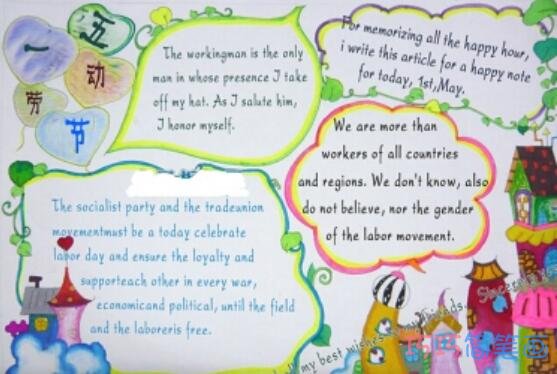 五一
劳动节
The workingman is the only
man in whose presence I take
off my hat. As I salute him,
I honor myself.
For memorizing all the happy hour,
i write this article for a happy note
for today, 1st,May.
We are more than
workers of all countries
and regions. We don't know, also
do not believe, nor the gender
of the labor movement.
The socialist party and the tradeunion
movementmust be a today celebrate
labor day and ensure the loyalty and
supporteach other in every war,
economicand political, until the field
and the laboreris free.
all my best wishes
friends.
简笔画